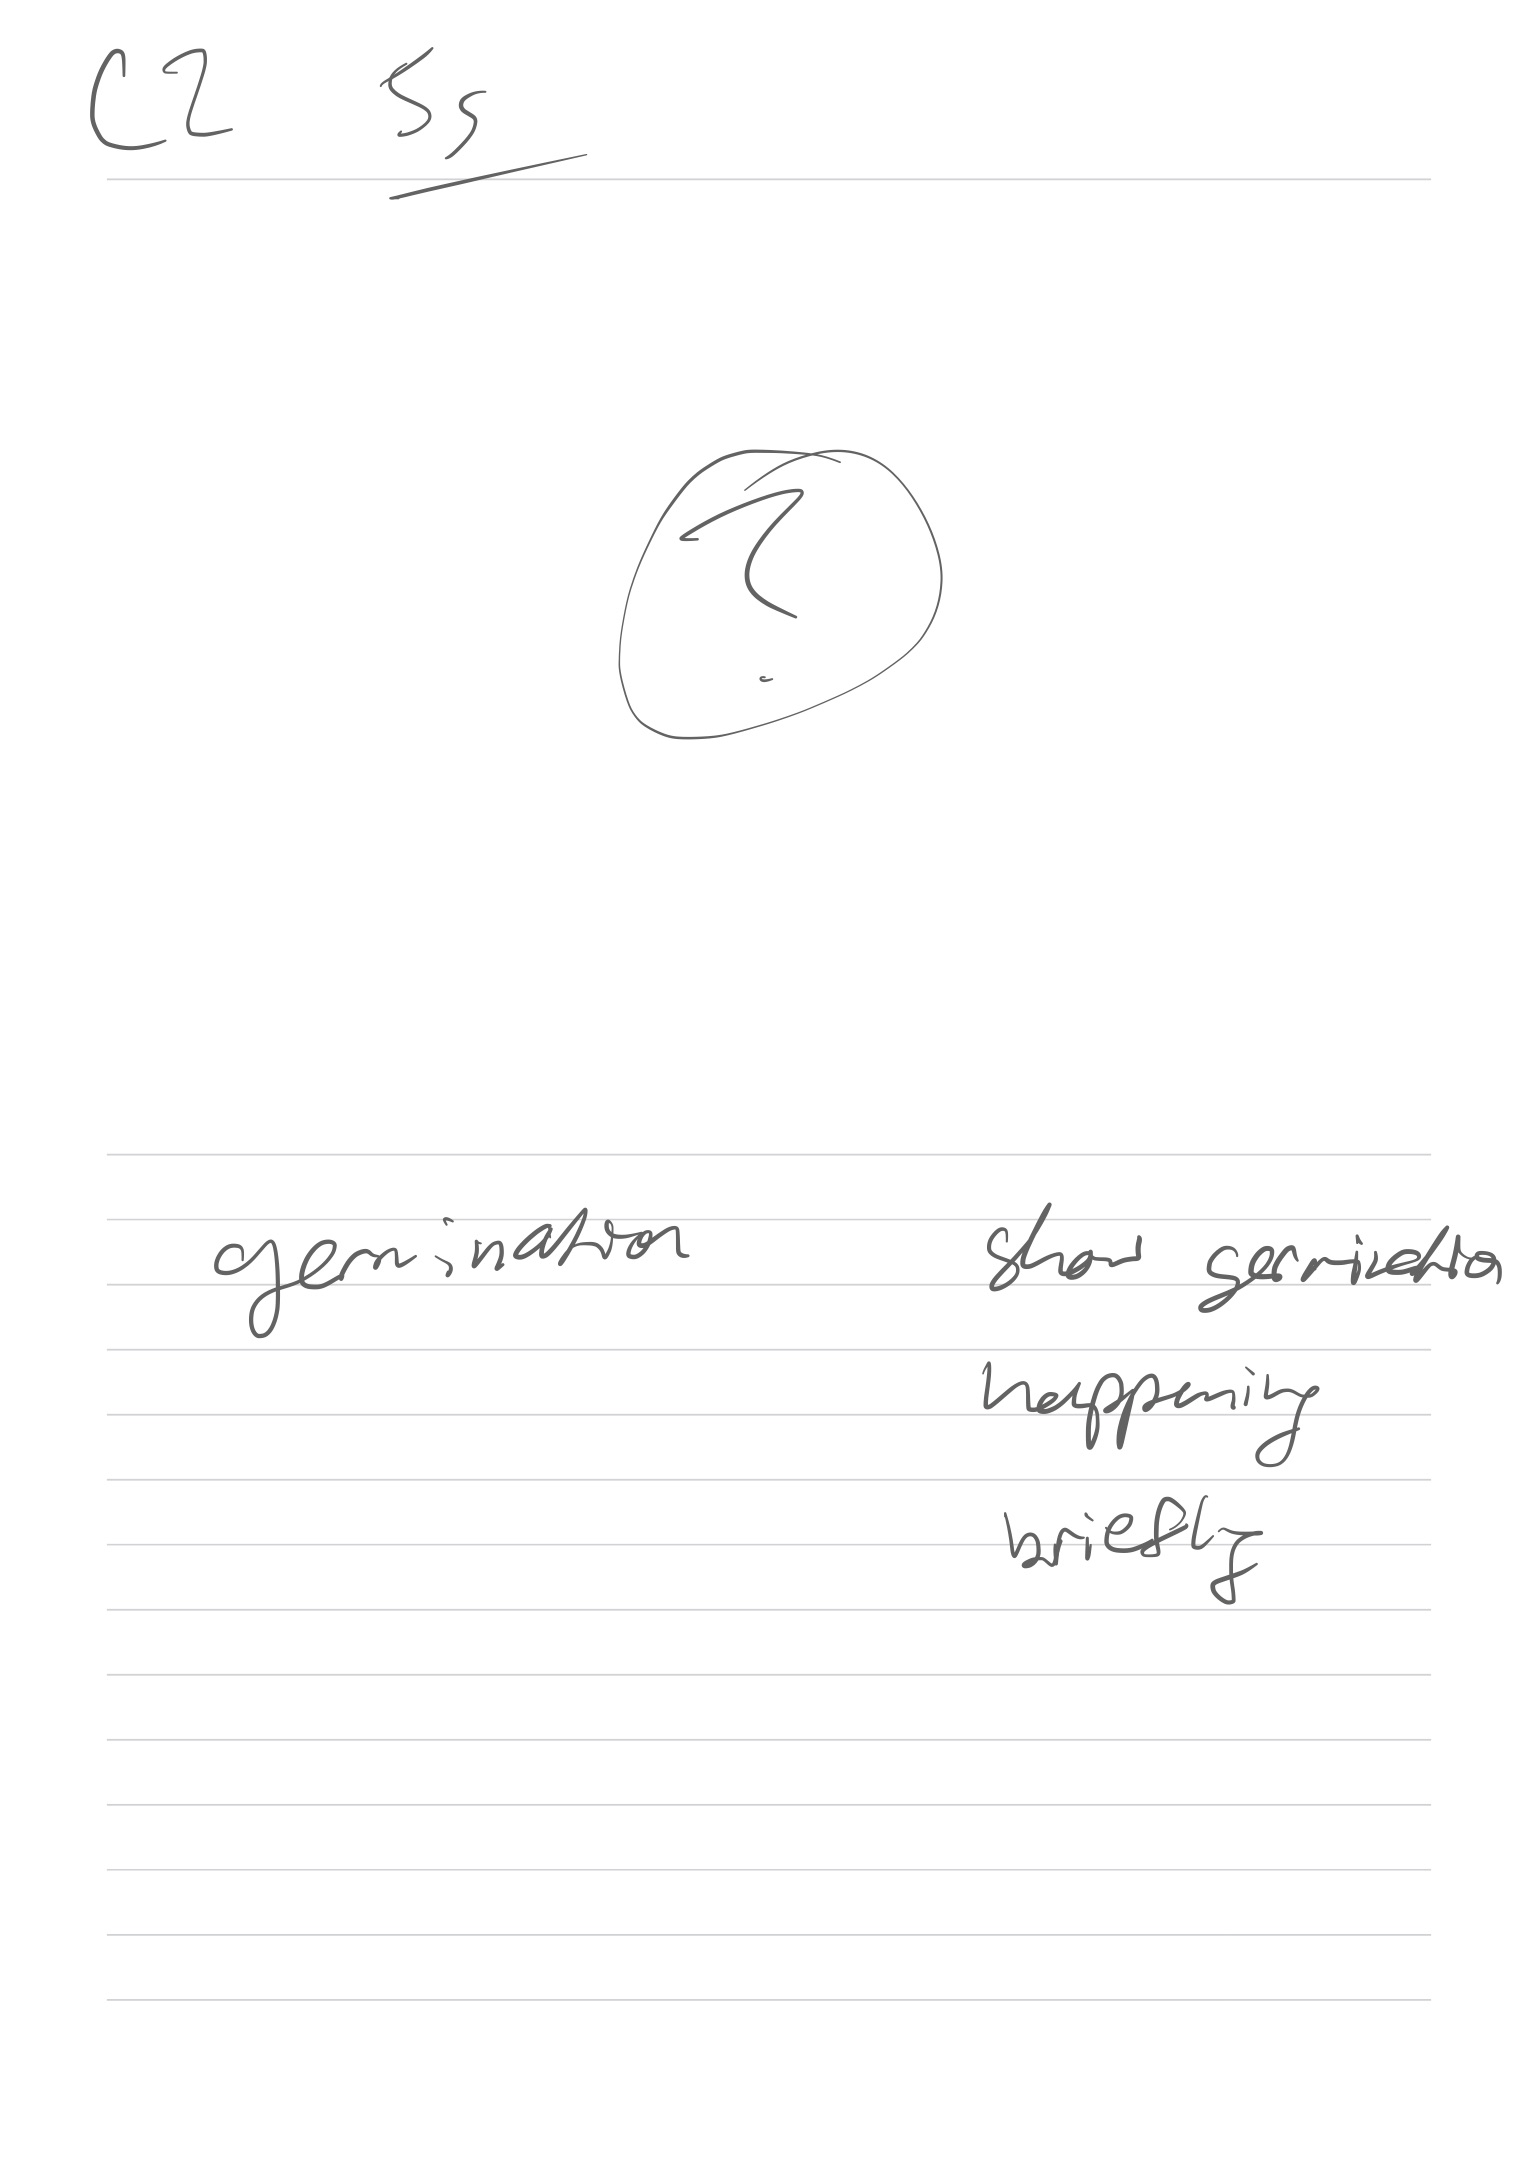 C2 5s
?
germination
show germination
happening
briefly